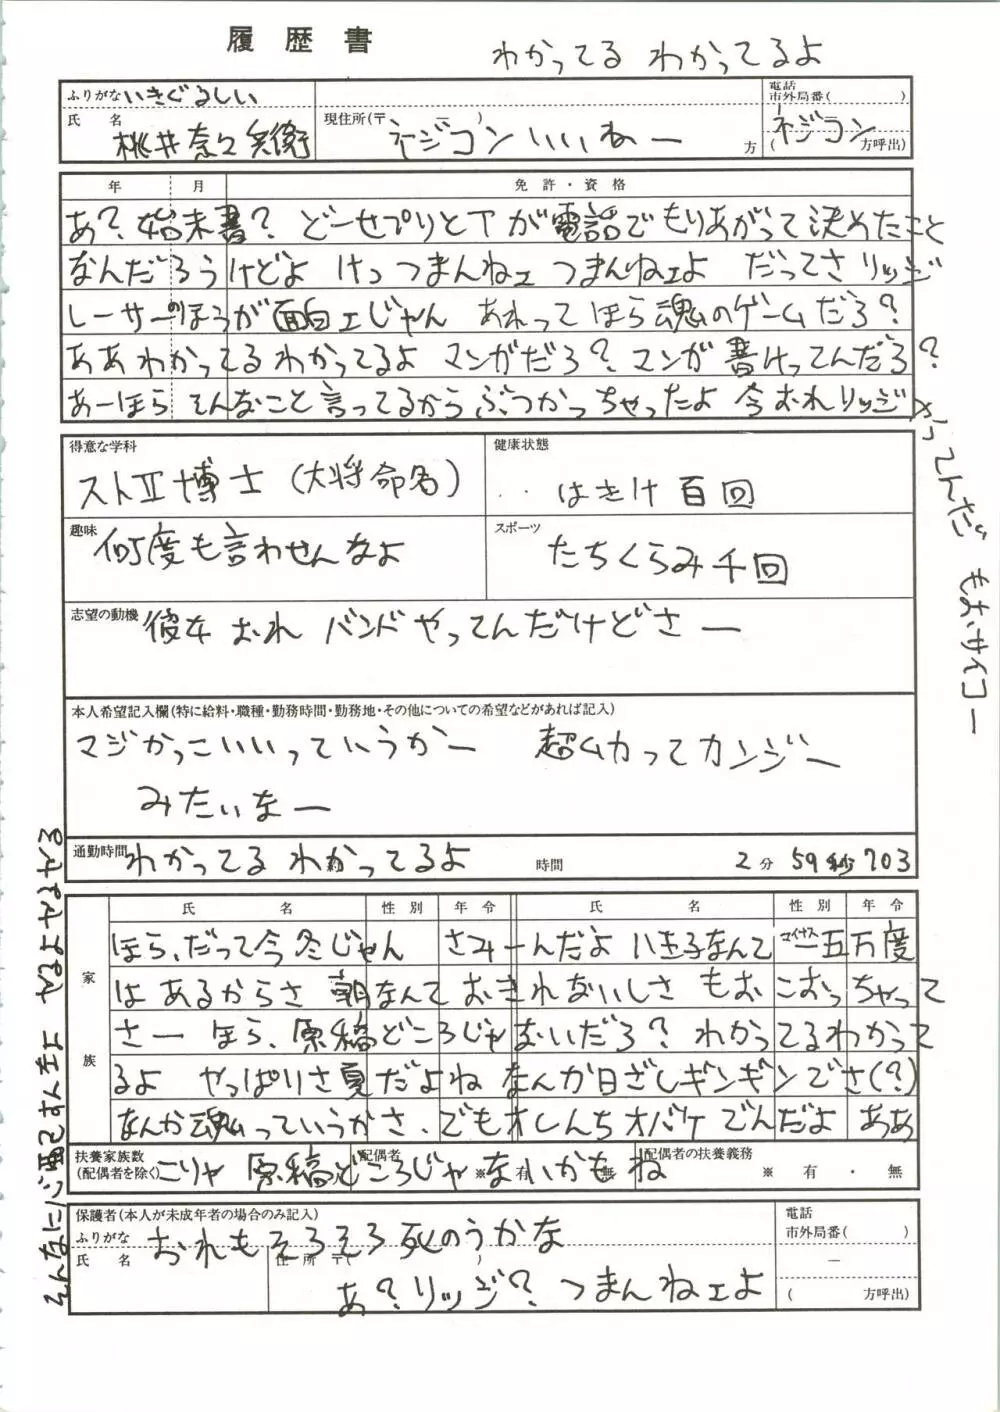 履歴書
わかってる わかってるよ
ふりがな いきぐるしい
氏名 桃井奈々兵衛
現住所(〒 ー )
ネジコン いいねー 方
電話
市外局番( )
ネジコン
( 方呼出)
年 月 免許・資格
あ?始末書? どーせプリとTが電話でもりあがって決めたこと
なんだろうけどよ けっつまんねェ つまんねェよ だってさ リッジ
レーサーのほうが面白ェじゃん あれってほら魂のゲームだろ?
ああわかってるわかってるよ マンガだろ?マンガ書けってんだろ?
あーほら そんなこと言ってるからぶつかっちゃったよ 今おれリッジ
やってんだ もおサイコー
得意な学科
ストⅡ博士(大将命名)
健康状態
‥はきけ百回
趣味
何度も言わせんなよ
スポーツ
たちくらみ千回
志望の動機
彼女 おれ バンドやってんだけどさー
本人希望記入欄(特に給料・職種・勤務時間・勤務地・その他についての希望などがあれば記入)
マジかっこいいっていうかー 超ムカってカンジー
みたいなー
通勤時間 わかってる わかってるよ 時間 2分 59秒703
家族
氏名 性別 年令 氏名 性別 年令
ほら、だって今冬じゃん さみーんだよ 八王子なんてマイナス一五万度
はあるからさ 朝なんておきれないしさ もおこおっちゃって
さー ほら、原稿どころじゃないだろ? わかってるわかって
るよ やっぱりさ夏だよね なんか日ざしギンギンでさ(?)
なんか魂っていうかさ、でもオレんちオバケでんだよ ああ
扶養家族数
(配偶者を除く)
配偶者
※ 有・無
配偶者の扶養義務
※ 有・無
こりゃ 原稿どころじゃないかもね
保護者(本人が未成年者の場合のみ記入)
ふりがな
おれもそろそろ死のうかな
氏名
住所 〒( )
あ?リッジ? つまんねェよ
電話
市外局番( )
ー
( 方呼出)
そんなに心配すんなよ やるよやるやる